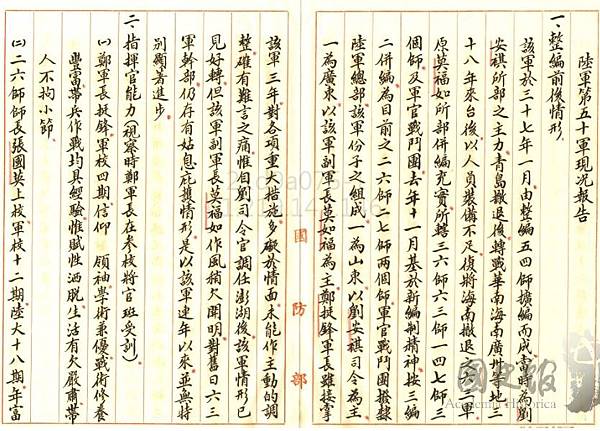 陸軍第五十軍現況報告
一、整編前後情形
該軍於三十七年一月由整編五四師擴編而成當時為劉
安祺所部之主力青島撤退後轉戰華南海南廣州等地三
十八年來台後以人員裝備不足復將海南撤退之六三軍
原莫福如所部併編充實所轄三六師六三師一四七師三
個師及軍官戰鬥團去年十一月基於新編制精神按三編
二併編為目前之二六師二七師兩個師軍官戰鬥團撥隸
陸軍總部該軍份子之組成一為山東以劉安祺司令為主
一為廣東以該軍副軍長莫如福為主鄭挺鋒軍長雖接掌
該軍三年對各項重大措施多礙於情面未能作主動的調
整確有難言之痛惟自劉司令官調任澎湖後該軍情形已
見好轉但該軍副軍長莫福如作風稍欠開明對舊日六三
軍幹部仍存有姑息庇護情形是以該軍連年以來並無特
別顯著進步
二、指揮官能力(視察時鄭軍長在參校將官班受訓)
㈠鄭軍長挺鋒軍校四期信仰 領袖學術兼優戰術修養
豐富帶兵作戰均具經驗惟賦性洒脫生活有欠嚴肅帶
人不拘小節
㈡二六師師長張國英上校軍校十二期陸大十八期年富
國防部
國史館
Academia Historica